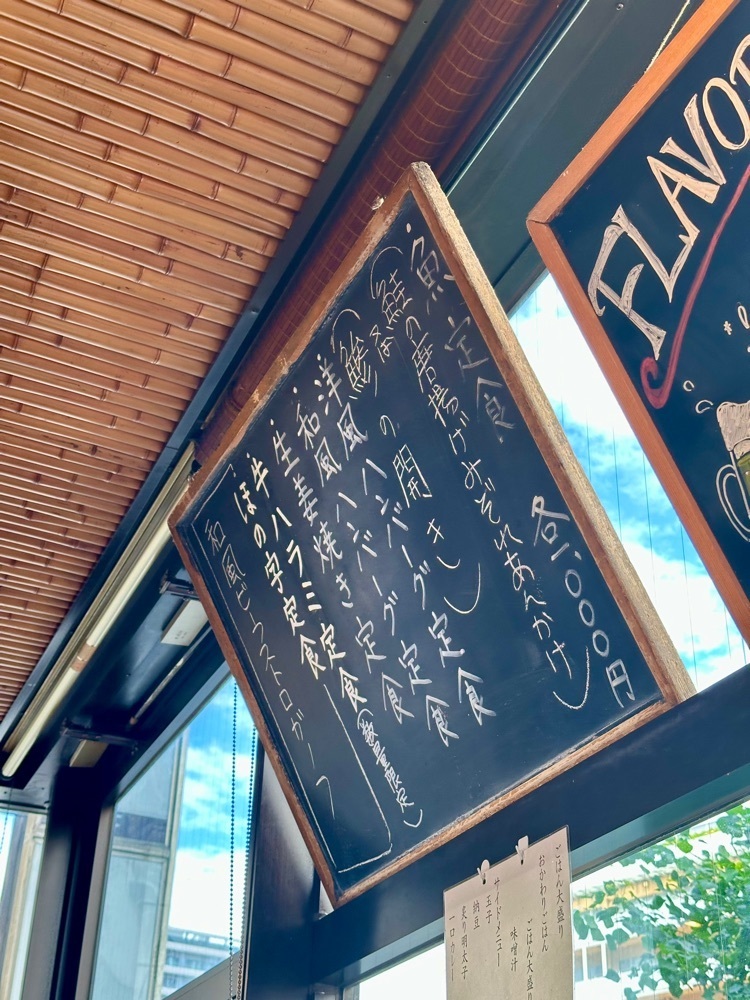 各一、〇〇〇円
・魚定食
(鮭の唐揚げみぞれあんかけ)
(鯵の開き)
・洋風ハンバーグ定食
・和風ハンバーグ定食
・生姜焼き定食
・牛ハラミ定食(数量限定)
・ほの字定食
和風ビーフストロガノフ
FLAVO
ごはん大盛り
おかわりごはん
ごはん大盛り
味噌汁
サイドメニュー
玉子
納豆
炙り明太子